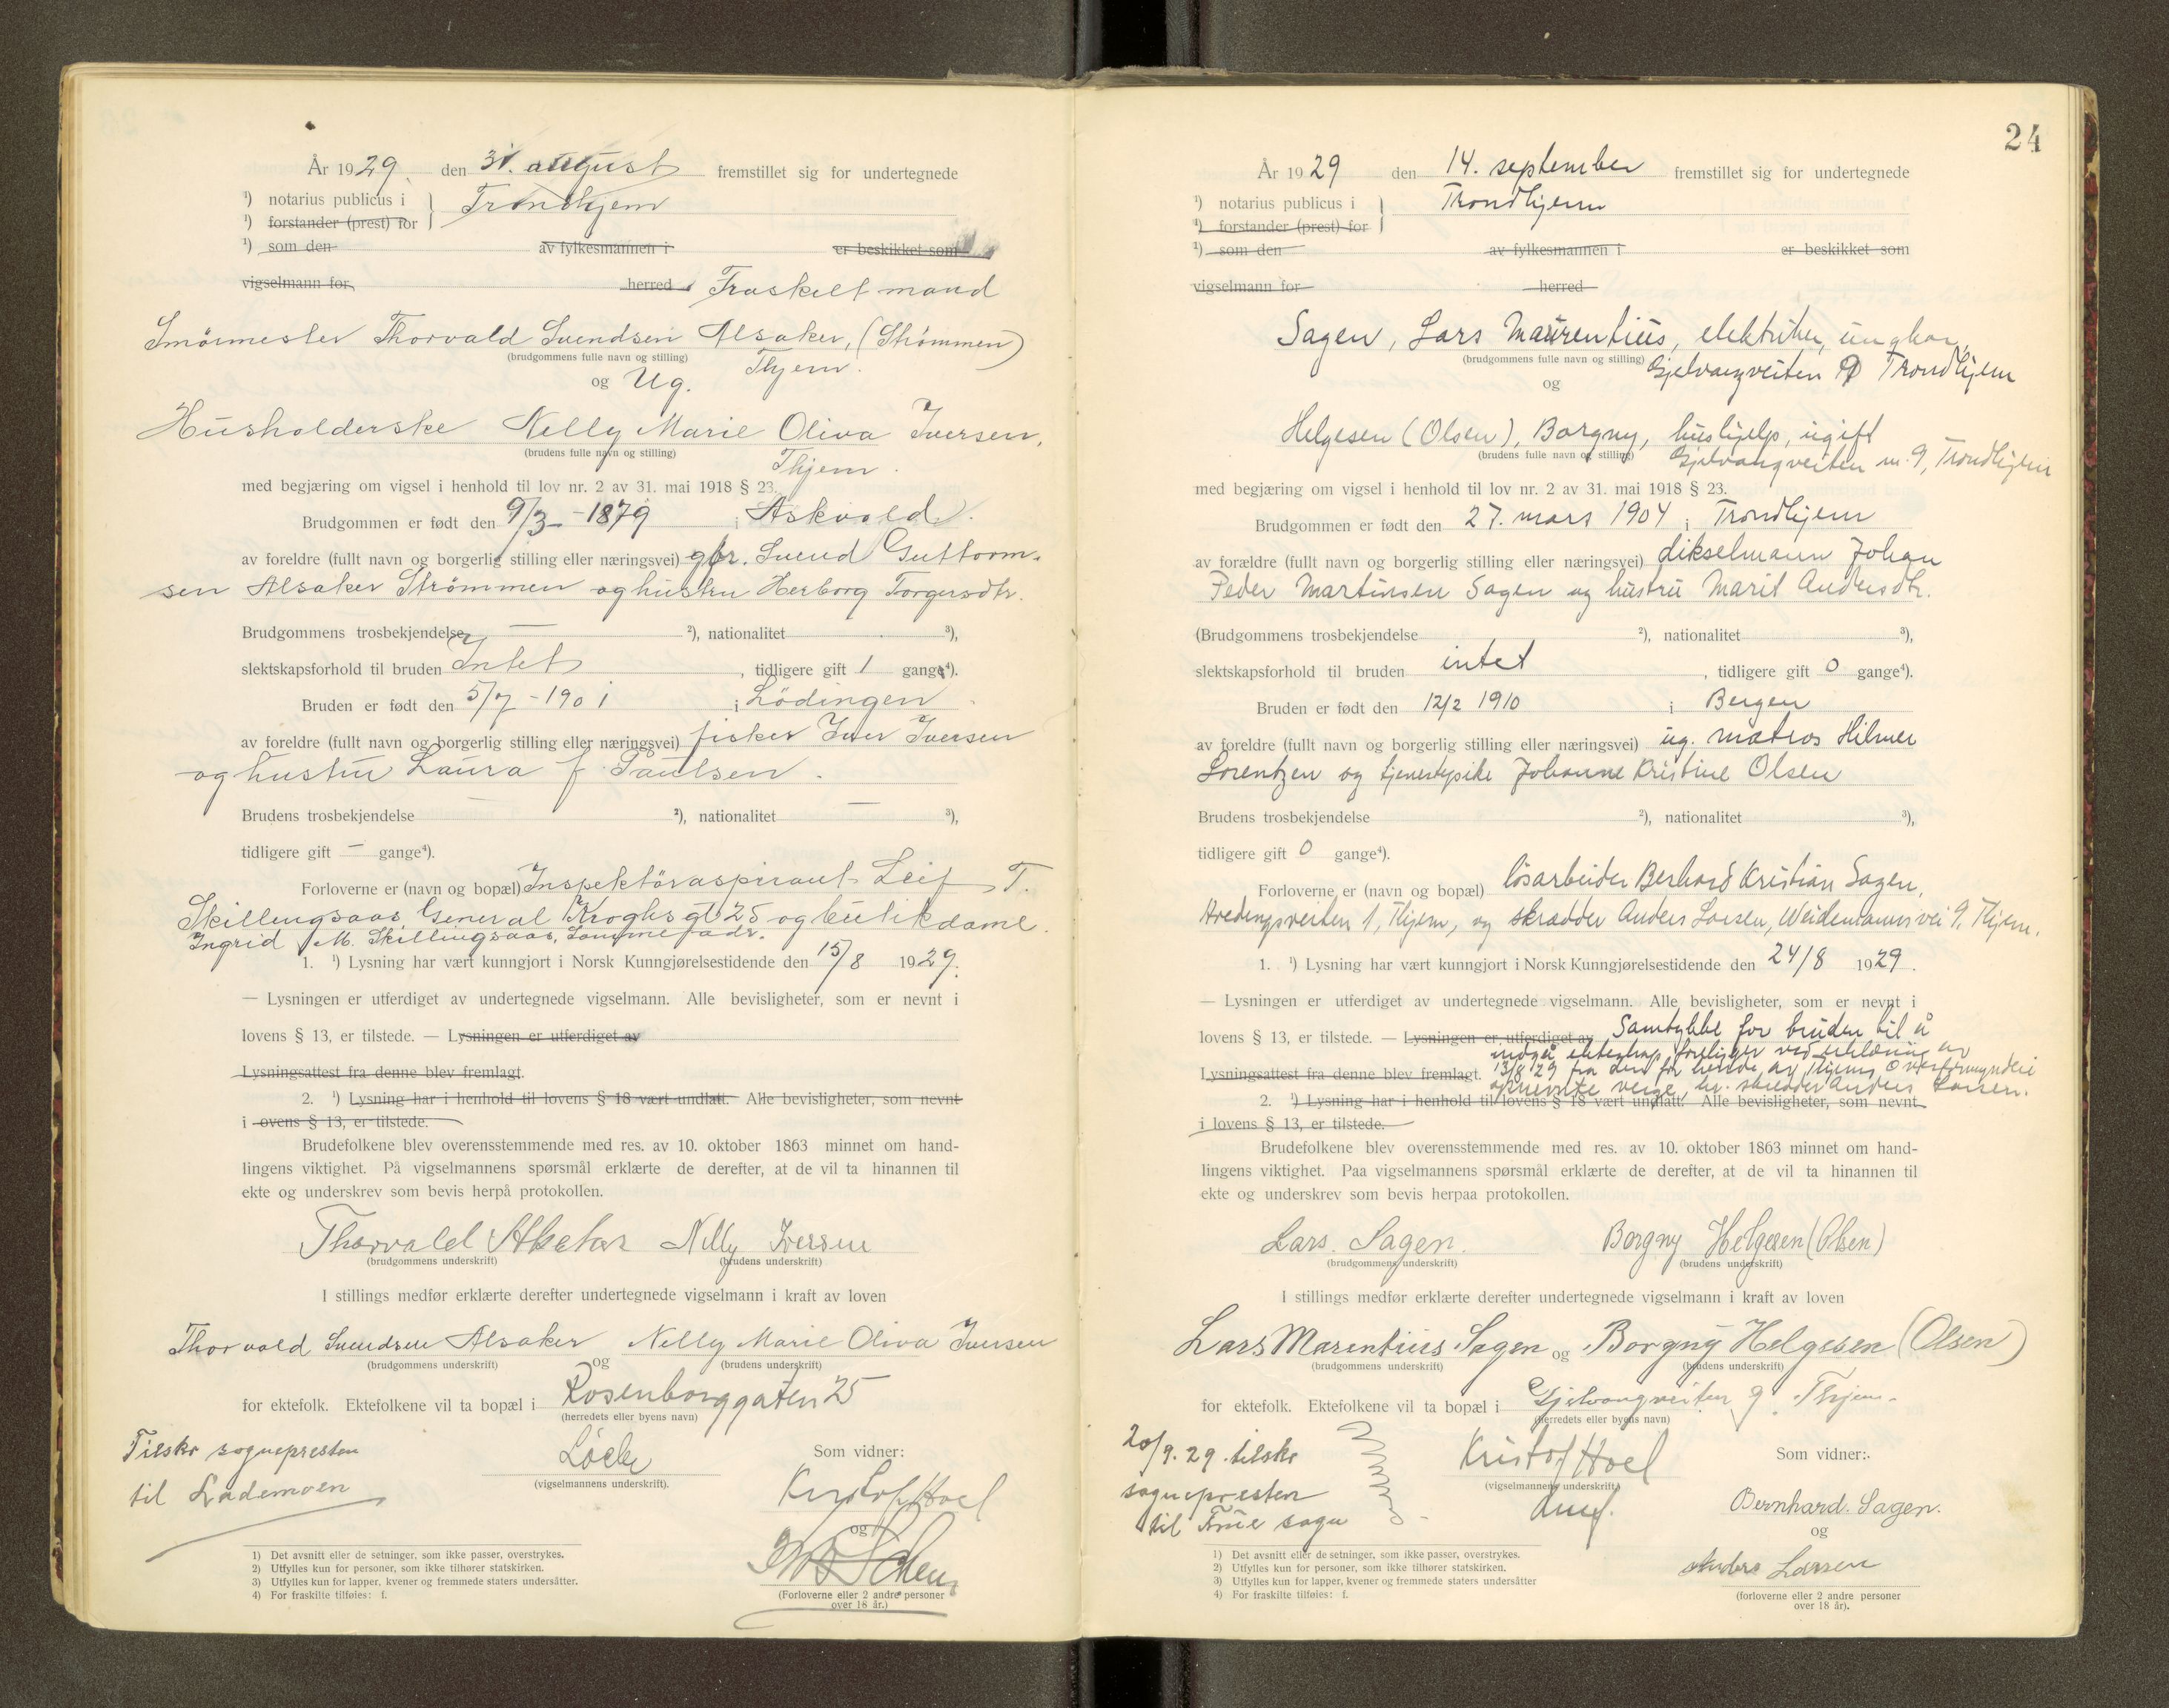 År 1929. den 31. august fremstillet sig for undertegnede
¹) notarius publicus i } Trondhjem
¹) forstander (prest) for
¹) som den av fylkesmannen i er beskikket som
vigselmann for herred Fraskilt mand
Smörmester Thorvald Svendsen Alsaker, (Strømmen)
(brudgommens fulle navn og stilling) Thjem.
og Ug.
Husholderske Nelly Marie Oliva Iversen,
(brudens fulle navn og stilling) Thjem.
med begjæring om vigsel i henhold til lov nr. 2 av 31. mai 1918 § 23.
Brudgommen er født den 9/3 - 1879 i Askvold.
av foreldre (fullt navn og borgerlig stilling eller næringsvei) gbr. Svend Guttorm-
sen Alsaker Strömmen og hustru Herborg Torgersdtr.
Brudgommens trosbekjendelse — ²), nationalitet ³),
slektskapsforhold til bruden Intet, tidligere gift 1 gange⁴).
Bruden er født den 5/7 - 1901 i Lödingen
av foreldre (fullt navn og borgerlig stilling eller næringsvei) fisker Iver Iversen
og hustru Laura f. Paulsen.
Brudens trosbekjendelse — ²), nationalitet — ³),
tidligere gift — gange⁴).
Forloverne er (navn og bopæl) Inspektöraspirant Leif T.
Skillingsaas General Kroghs gt 25 og butikdame
Ingrid M. Skillingsaas, samme adr.
1. ¹) Lysning har vært kunngjort i Norsk Kunngjørelsestidende den 15/8 1929.
— Lysningen er utferdiget av undertegnede vigselmann. Alle bevisligheter, som er nevnt i
lovens § 13, er tilstede. — Lysningen er utferdiget av
Lysningsattest fra denne blev fremlagt.
2. ¹) Lysning har i henhold til lovens § 18 vært undlatt. Alle bevisligheter, som nevnt
i lovens § 13, er tilstede.
Brudefolkene blev overensstemmende med res. av 10. oktober 1863 minnet om hand-
lingens viktighet. På vigselmannens spørsmål erklærte de derefter, at de vil ta hinannen til
ekte og underskrev som bevis herpå protokollen.
Thorvald Alsaker Nelly Iversen
(brudgommens underskrift) (brudens underskrift)
I stillings medfør erklærte derefter undertegnede vigselmann i kraft av loven
Thorvald Svendsen Alsaker og Nelly Marie Oliva Iversen
(brudgommens underskrift) (brudens underskrift)
for ektefolk. Ektefolkene vil ta bopæl i Rosenborggaten 25
(herredets eller byens navn)
Tilskr sognepresten
til Lademoen
(vigselmannens underskrift).
Som vidner:
Kristof Hoel
og
(Forloverne eller 2 andre personer
over 18 år.)
1) Det avsnitt eller de setninger, som ikke passer, overstrykes.
2) Utfylles kun for personer, som ikke tilhører statskirken.
3) Utfylles kun for lapper, kvener og fremmede staters undersåtter.
4) For fraskilte tilføies: f.
24
År 1929 den 14. september fremstillet sig for undertegnede
¹) notarius publicus i } Trondhjem
¹) forstander (prest) for
¹) som den av fylkesmannen i er beskikket som
vigselmann for herred
Sagen, Lars Maurentius, elektriker, ungkar,
(brudgommens fulle navn og stilling) Gjelvangveiten 9 Trondhjem
og
Helgesen (Olsen), Borgny, hushjelp, ugift
(brudens fulle navn og stilling) Gjelvangveiten nr. 9, Trondhjem
med begjæring om vigsel i henhold til lov nr. 2 av 31. mai 1918 § 23.
Brudgommen er født den 27. mars 1904 i Trondhjem
av forældre (fullt navn og borgerlig stilling eller næringsvei) dikselmann Johan
Peder Martinsen Sagen og hustru Marit Andersdtr.
(Brudgommens trosbekjendelse ²), nationalitet ³),
slektskapsforhold til bruden intet, tidligere gift 0 gange⁴).
Bruden er født den 12/2 1910 i Bergen
av foreldre (fullt navn og borgerlig stilling eller næringsvei) ug. matros Hilmer
Lorentzen og tjenestepike Johanne Kristine Olsen
Brudens trosbekjendelse ²), nationalitet ³),
tidligere gift 0 gange⁴).
Forloverne er (navn og bopæl) løsarbeider Berhard Kristian Sagen,
Hredingsveiten 1, Thjem, og skrædder Anders Larsen, Weidemannsvei 9, Thjem.
1. ¹) Lysning har vært kunngjort i Norsk Kunngjørelsestidende den 24/8 1929.
— Lysningen er utferdiget av undertegnede vigselmann. Alle bevisligheter, som er nevnt i
lovens § 13, er tilstede. — Lysningen er utferdiget av Samtykke for bruden til å
indgå ekteskap foreligger ved erklæring av
Lysningsattest fra denne blev fremlagt. 13/8 29 fra den for hende av Thjems Overformynderi
opnevnte verge, hr. skredder Anders Larsen.
2. ¹) Lysning har i henhold til lovens § 18 vært undlatt. Alle bevisligheter, som nevnt
i lovens § 13, er tilstede.
Brudefolkene blev overensstemmende med res. av 10. oktober 1863 minnet om hand-
lingens viktighet. Paa vigselmannens spørsmål erklærte de derefter, at de vil ta hinannen til
ekte og underskrev som bevis herpaa protokollen.
Lars. Sagen. Borgny Helgesen (Olsen)
(brudgommens underskrift) (brudens underskrift)
I stillings medfør erklærte derefter undertegnede vigselmann i kraft av loven
Lars Marentius Sagen og Borgny Helgesen (Olsen)
(brudgommens underskrift) (brudens underskrift)
for ektefolk. Ektefolkene vil ta bopæl i Gjelvangveiten 9, Thjem.
(herredets eller byens navn)
20/9. 29. tilskr
sognepresten
til Frue sogn
Kristof Hoel
(vigselmannens underskrift)
Som vidner:
Bernhard. Sagen.
og
Anders Larsen
(forloverne eller 2 andre personer
over 18 år).
1) Det avsnitt eller de setninger, som ikke passer, overstrykes.
2) Utfylles kun for personer, som ikke tilhører statskirken.
3) Utfylles kun for lapper, kvener og fremmede staters undersåtter
4) For fraskilte tilføies: f.